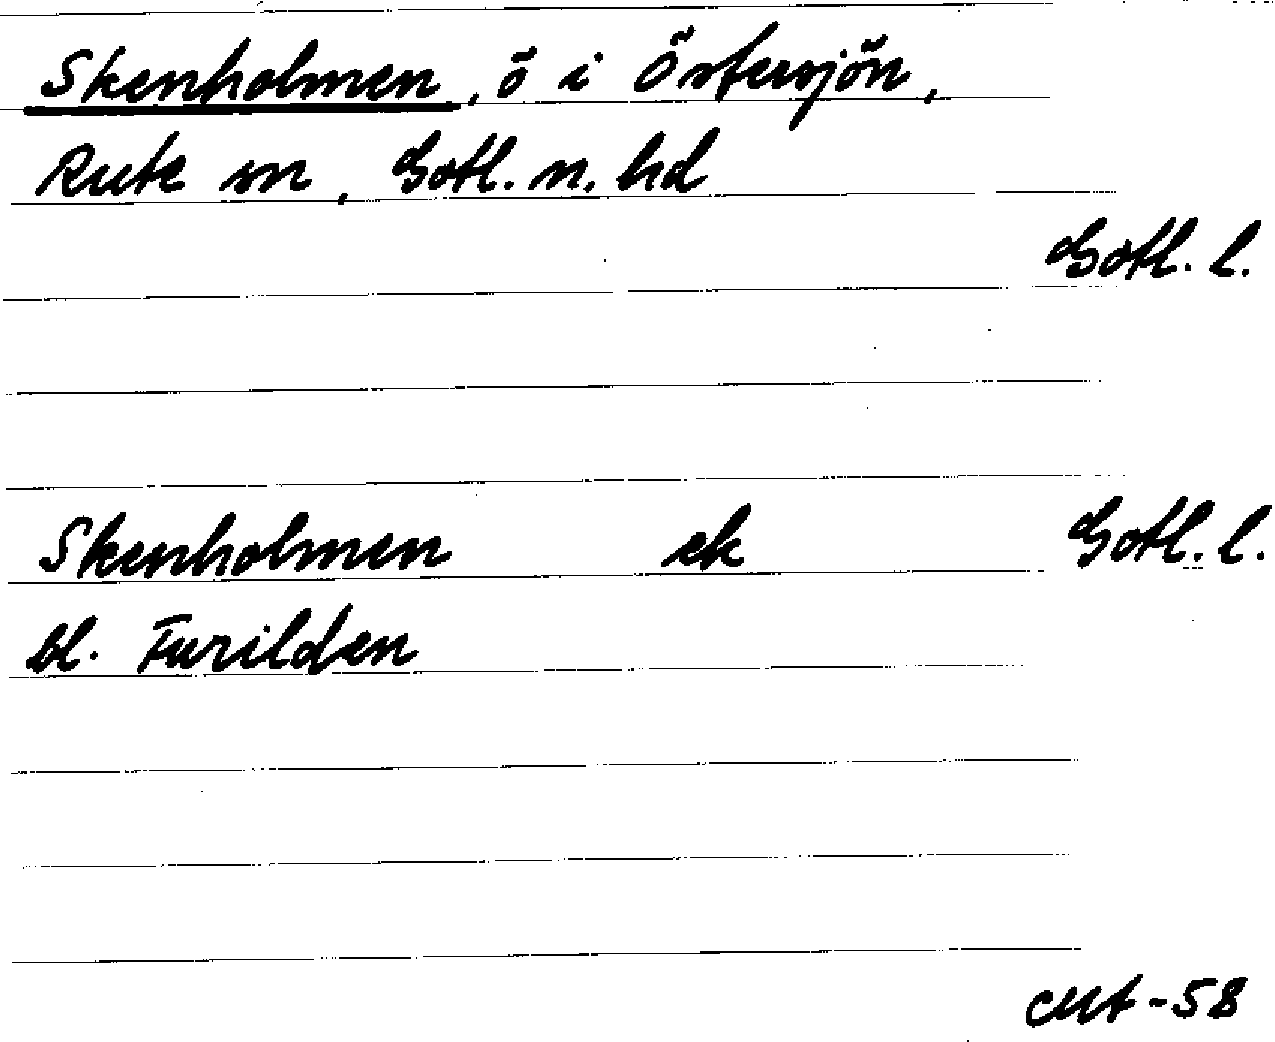 Skenholmen, ö i Östersjön,
Rute sn, Gotl. n. hd
Gotl. l.
Skenholmen ek Gotl. l.
bl. Furilden